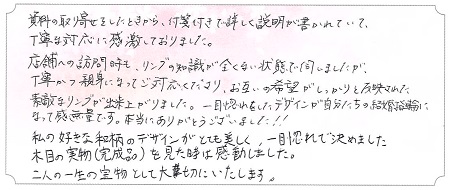 資料の取り寄せをしたときから、付箋付きで詳しく説明が書かれていて、
丁寧な対応に感激しておりました。
店舗への訪問時も、リングの知識が全くない状態で伺いましたが、
丁寧かつ親身になってご対応くださり、お互いの希望がしっかりと反映された
素敵なリングが出来上がりました。一目惚れをしたデザインが自分たちの結婚指輪に
なって感無量です。本当にありがとうございました!!
私の好きな和柄のデザインがとても美しく、一目惚れで決めました
木目の実物(完成品)を見た時は感動しました。
二人の一生の宝物として大事切にいたします。